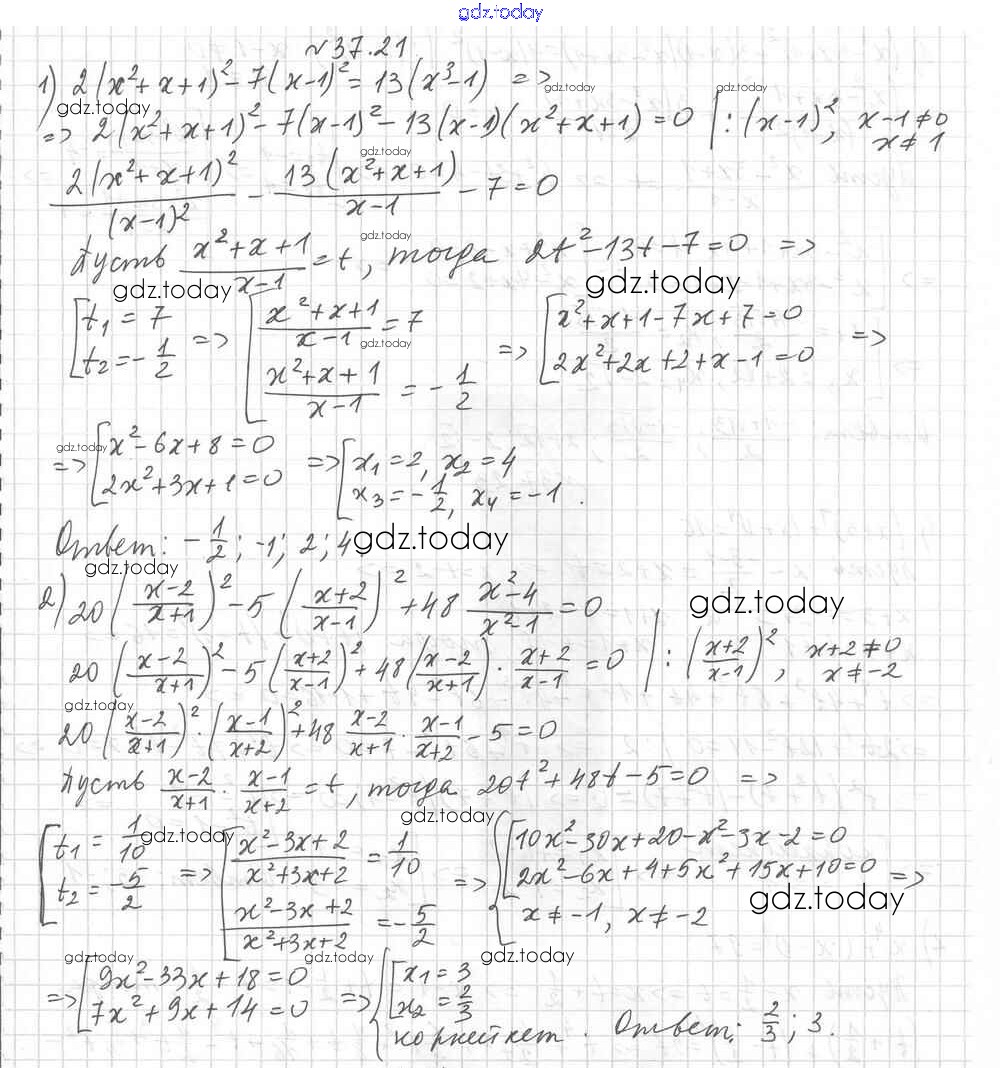 gdz.today
№37.21
1) 2(x²+x+1)²-7(x-1)²=13(x³-1) => gdz.today gdz.today
gdz.today
=> 2(x²+x+1)²-7(x-1)²-13(x-1)(x²+x+1)=0 |:(x-1)², x-1≠0
x≠1
gdz.today
2(x²+x+1)²/(x-1)² - 13(x²+x+1)/(x-1) - 7=0
gdz.today
Пусть (x²+x+1)/(x-1)=t, тогда 2t²-13t-7=0 =>
gdz.today gdz.today
[t₁=7 t₂=-1/2 => [(x²+x+1)/(x-1)=7 (x²+x+1)/(x-1)=-1/2 => [x²+x+1-7x+7=0 2x²+2x+2+x-1=0 =>
gdz.today
gdz.today
=> [x²-6x+8=0 2x²+3x+1=0 => [x₁=2, x₂=4 x₃=-1/2, x₄=-1.
Ответ: -1/2; -1; 2; 4 gdz.today
gdz.today
2) 20((x-2)/(x+1))²-5((x+2)/(x-1))²+48 (x²-4)/(x²-1)=0
gdz.today
20((x-2)/(x+1))²-5((x+2)/(x-1))²+48((x-2)/(x+1))·(x+2)/(x-1)=0 |:((x+2)/(x-1))², x+2≠0
x≠-2
gdz.today
20((x-2)/(x+1))²·((x-1)/(x+2))²+48 (x-2)/(x+1)·(x-1)/(x+2)-5=0
Пусть (x-2)/(x+1)·(x-1)/(x+2)=t, тогда 20t²+48t-5=0 =>
gdz.today
gdz.today
[t₁=1/10 t₂=-5/2 => [(x²-3x+2)/(x²+3x+2)=1/10 (x²-3x+2)/(x²+3x+2)=-5/2 => {[10x²-30x+20-x²-3x-2=0 2x²-6x+4+5x²+15x+10=0 x≠-1, x≠-2 =>
gdz.today
gdz.today gdz.today gdz.today
=> [9x²-33x+18=0 7x²+9x+14=0 => {[x₁=3 x₂=2/3 корней нет. Ответ: 2/3; 3.